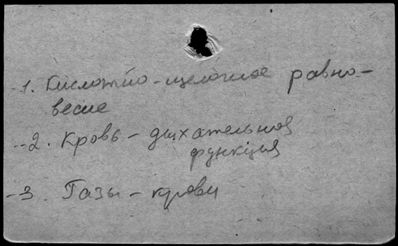 1. Кислотно-щелочное равно-
весие
2. Кровь - дыхательная
функция
3. Газы - крови